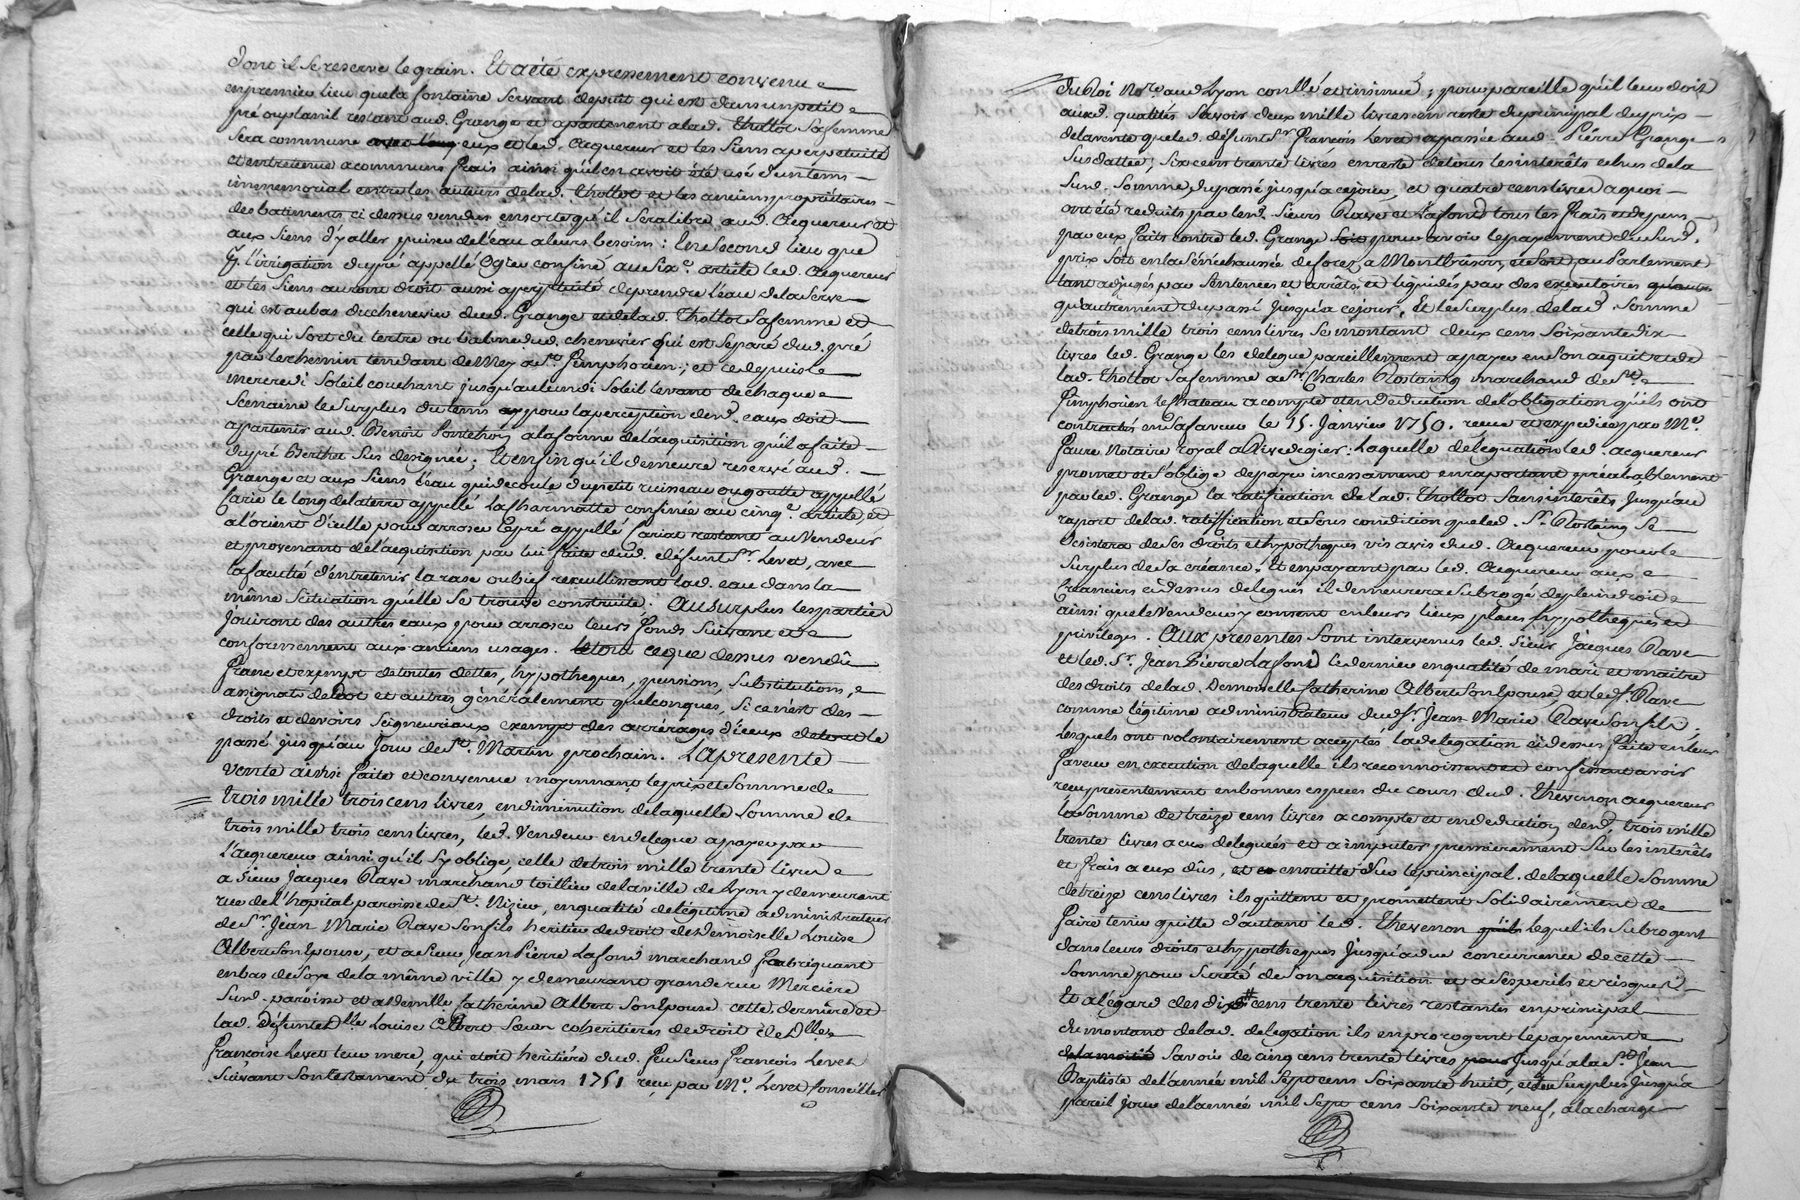 dont il se reserve le grain. Et a été expressement convenu
en premier lieu que la fontaine servant de puit qui est dans un petit
pré ou plavil restant aud. Grange et apartenant a lad. Thollot sa femme
sera commune eux et led. acquereur et les siens a perpetuité
et entretenue a communs frais ainsi qu'il en avoit été usé d'un tems
immemorial entre les auteurs de lad. Thollot et les anciens propriétaires
des batiments ci dessus vendus en sorte qu'il sera libre aud. acquereur et
aux siens d'y aller puiser de l'eau a leurs besoins : en second lieu que
l'irrigation du pré appellé Ogier confiné au six.e article led. acquereur
et les siens auront droit aussi a perpetuité de prendre l'eau de la serve
qui est au bas du chenevier dud. Grange et de lad. Thollot sa femme et
celle qui sort du tertre ou cabine dud. chenevier qui est séparé dud. pré
par le chemin tendant de Mey a St. Simphorien ; et ce depuis le
mercredi soleil couchant jusqu'au lundi soleil levant de chaque
semaine le surplus du tems pour la perception desd. eaux doit
apartenir aud. Benoit Ponteton a la forme de l'acquisition qu'il a faite
du pré Berthot sus designée ; Et enfin qu'il demeure reservé aud.
Grange et aux siens l'eau qui decoule du petit ruisseau ou goutte appellé
Carie le long de la terre appellé la Charmatte confinée au cinq.e article, et
a l'orient d'icelle pour arroser le pré appellé Cariat restant au vendeur
et provenant de l'acquisition par lui faite dud. défunt Sr. Levet, avec
la faculté d'entretenir la rase ou bief recueillissant lad. eau dans la
même scituation qu'elle se trouve construite. Au surplus les parties
jouiront des autres eaux pour arroser leurs fonds suivant et
conformement aux anciens usages. le tout ce que dessus vendû
franc et exempt de toutes dettes, hypotheques, pensions, substitutions,
assignats de dot et autres généralement quelconques, si ce n'est des
droits et devoirs seigneuriaux exempt des arrérages d'iceux de tout le
passé jusqu'au jour de St. Martin prochain. La presente
vente ainsi faite et convenue moyennant le prix et somme de
trois mille trois cens livres, en diminution de laquelle somme de
trois mille trois cens livres, led. vendeur en delegue a payer par
l'acquereur ainsi qu'il s'y oblige, celle de trois mille trente livres
a sieur Jacques Rave marchand toillier de la ville de Lyon y demeurant
rue de l'hopital paroisse de St. Nizier, en qualité de légitime administrateur
de Sr. Jean Marie Rave son fils heritier de droit de Demoiselle Louise
Albert son epouse, et a sieur Jean Pierre Lafond marchand fabriquant
en bas de soye de la même ville y demeurant grande rue Merciere
susd. paroisse et a demlle Catherine Albert son epouse cette derniere et
lad. défunte dlle Louise Albert soeur coheritieres de droit de Dlle
Françoise Levet leur mere, qui etoit heritiére dud. feu sieur François Levet
suivant son testament du trois mars 1751 reçu par Me. Levet Conseiller
du Roi Nore. aud. Lyon conllé et insinué ; pour pareille qu'il leur doit
auxd. qualités savoir deux mille livres en reste du principal du prix
de la vente que led. défunt Sr. François Levet a passée aud. Pierre Grange
sus dattée, six cens trente livres en reste de tous les interêts echus de la
susd. somme, du passé jusqu'a ce jour, et quatre cens livres a quoi
ont été reduits par lesd. sieurs Rave et Lafond tous les frais et depens
par eux faits contre led. Grange pour avoir le payement du susd.
prix soit en la sénéchaussée de forez a Montbrison, au Parlement
tant adjugés par sentences et arrêts, et liquidés par des executoires
qu'autrement du passé jusqu'a ce jour, Et le surplus de lad. somme
de trois mille trois cens livres se montant deux cens soixante dix
livres led. Grange les delegue pareillement a payer en son acquit et de
lad. Thollot sa femme a Sr. Charles Rostaing marchand de St.
Simphorien le Chateau a compte et en deduction de l'obligation qu'ils ont
contractés en sa faveur le 15. Janvier 1750. recue et expediée par Me.
Faure Notaire royal a Rivedegier : laquelle délégation led. acquereur
promet et s'oblige de payer incessament en raportant préalablement
par led. Grange la ratification de lad. Thollot sans interêts jusqu'au
raport de lad. ratiffication et sous condition que led. Sr. Rostaing se
desistera de ses droits et hypotheques vis avis dud. acquereur pour le
surplus de sa créance, Et en payant par led. acquereur aux
creanciers ci dessus delegués il demeurera subrogé de plein droit
ainsi que le vendeur y consent en leurs lieux places hypotheques et
privileges. Aux presentes sont intervenus led. sieur Jacques Rave
et led. Sr. Jean Pierre Lafond le dernier en qualité de mari et maitre
des droits de lad. Demoiselle Catherine Albert son Epouse, et led. Sr. Rave
comme légitime administrateur dud. Sr. Jean Marie Rave son fils ;
lesquels ont volontairement acceptés la delegation ci dessus faite en leur
faveur en execution de laquelle ils reconnoissent et confessent avoir
recu presentement en bonnes especes du cours dud. Thevenon acquereur
la somme de treize cens livres a compte et en deduction desd. trois mille
trente livres a eux deleguées et a imputer premierement sur les interêts
et frais a eux dûs, et ensuitte sur le principal. de laquelle somme
de treize cens livres ils quittent et promettent solidairement de
faire tenir quitte d'autant led. Thevenon lequel ils subrogent
dans leurs droits et hypotheques jusqu'a due concurrence de cette
somme pour sureté de son acquisition et a ses perils et risques
Et a l'égard des dix sept cens trente livres restantes en principal
du montant de lad. delegation ils en prorogent le payement
savoir de cinq cens trente livres jusqu'a la St. Jean
Baptiste de l'année mil sept cens soixante huit, et le surplus jusqu'a
pareil jour de l'année mil sept cens soixante neuf, a la charge